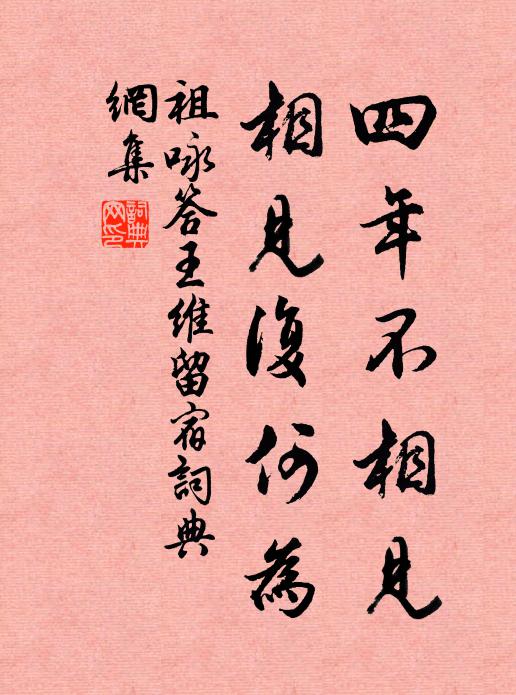 四年不相見
相見復何為
祖咏答王維留宿詞典
網集
詞典網印